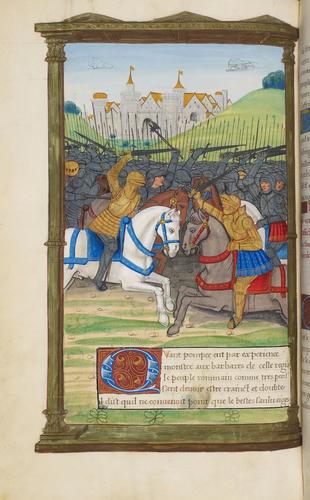 Quant pompee eut par experience
monstre aux barbares de celle regi
le peuple rommain comme tres puis
sant devoir estre craint et doubte
il dist quil ne convenoit point que le bestes sauluaiges